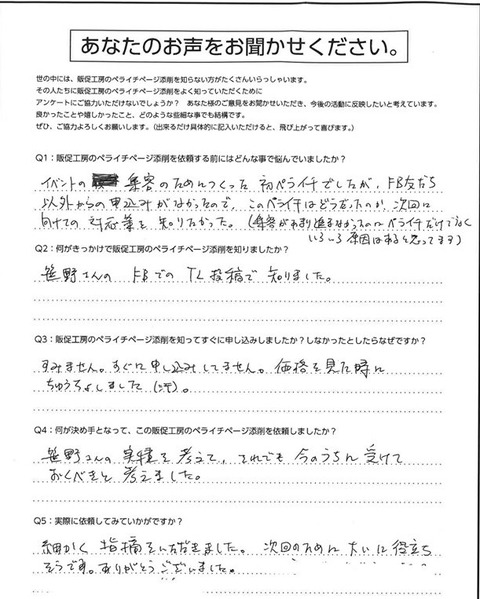 あなたのお声をお聞かせください。
世の中には、販促工房のペライチページ添削を知らない方がたくさんいらっしゃいます。
その人たちに販促工房のペライチページ添削をよく知っていただくために
アンケートにご協力いただけないでしょうか？ あなた様のご意見をお聞かせいただき、今後の活動に反映したいと考えています。
良かったことや嬉しかったこと、どのような些細な事でも結構です。
ぜひ、ご協力よろしくお願いします。（出来るだけ具体的に記入いただけると、飛び上がって喜びます。）
Q1：販促工房のペライチページ添削を依頼する前にはどんな事で悩んでいましたか？
イベントの 集客のためにつくった 初ペライチでしたが、FB友だち
以外からの申込みがなかったので、このペライチはどうだったのか、次回に
向けての 対応策を 知りたかった。（集客があまり進まなかったのにペライチだけでなく
いろいろ原因はあると思ってます）
Q2：何がきっかけで販促工房のペライチページ添削を知りましたか？
笹野さんの FBでの TL投稿で 知りました。
Q3：販促工房のペライチページ添削を知ってすぐに申し込みしましたか？しなかったとしたらなぜですか？
すみません。すぐに申し込みしてません。価格を見た時に
ちゅうちょしました（汗）。
Q4：何が決め手となって、この販促工房のペライチページ添削を依頼しましたか？
笹野さんの 実績を 考えて、それでも 今のうちに 受けて
おくべきと 考えました。
Q5：実際に依頼してみていかがですか？
細かく 指摘をいただきました。 次回のために 大いに 役立ち
そうです。ありがとうございました。